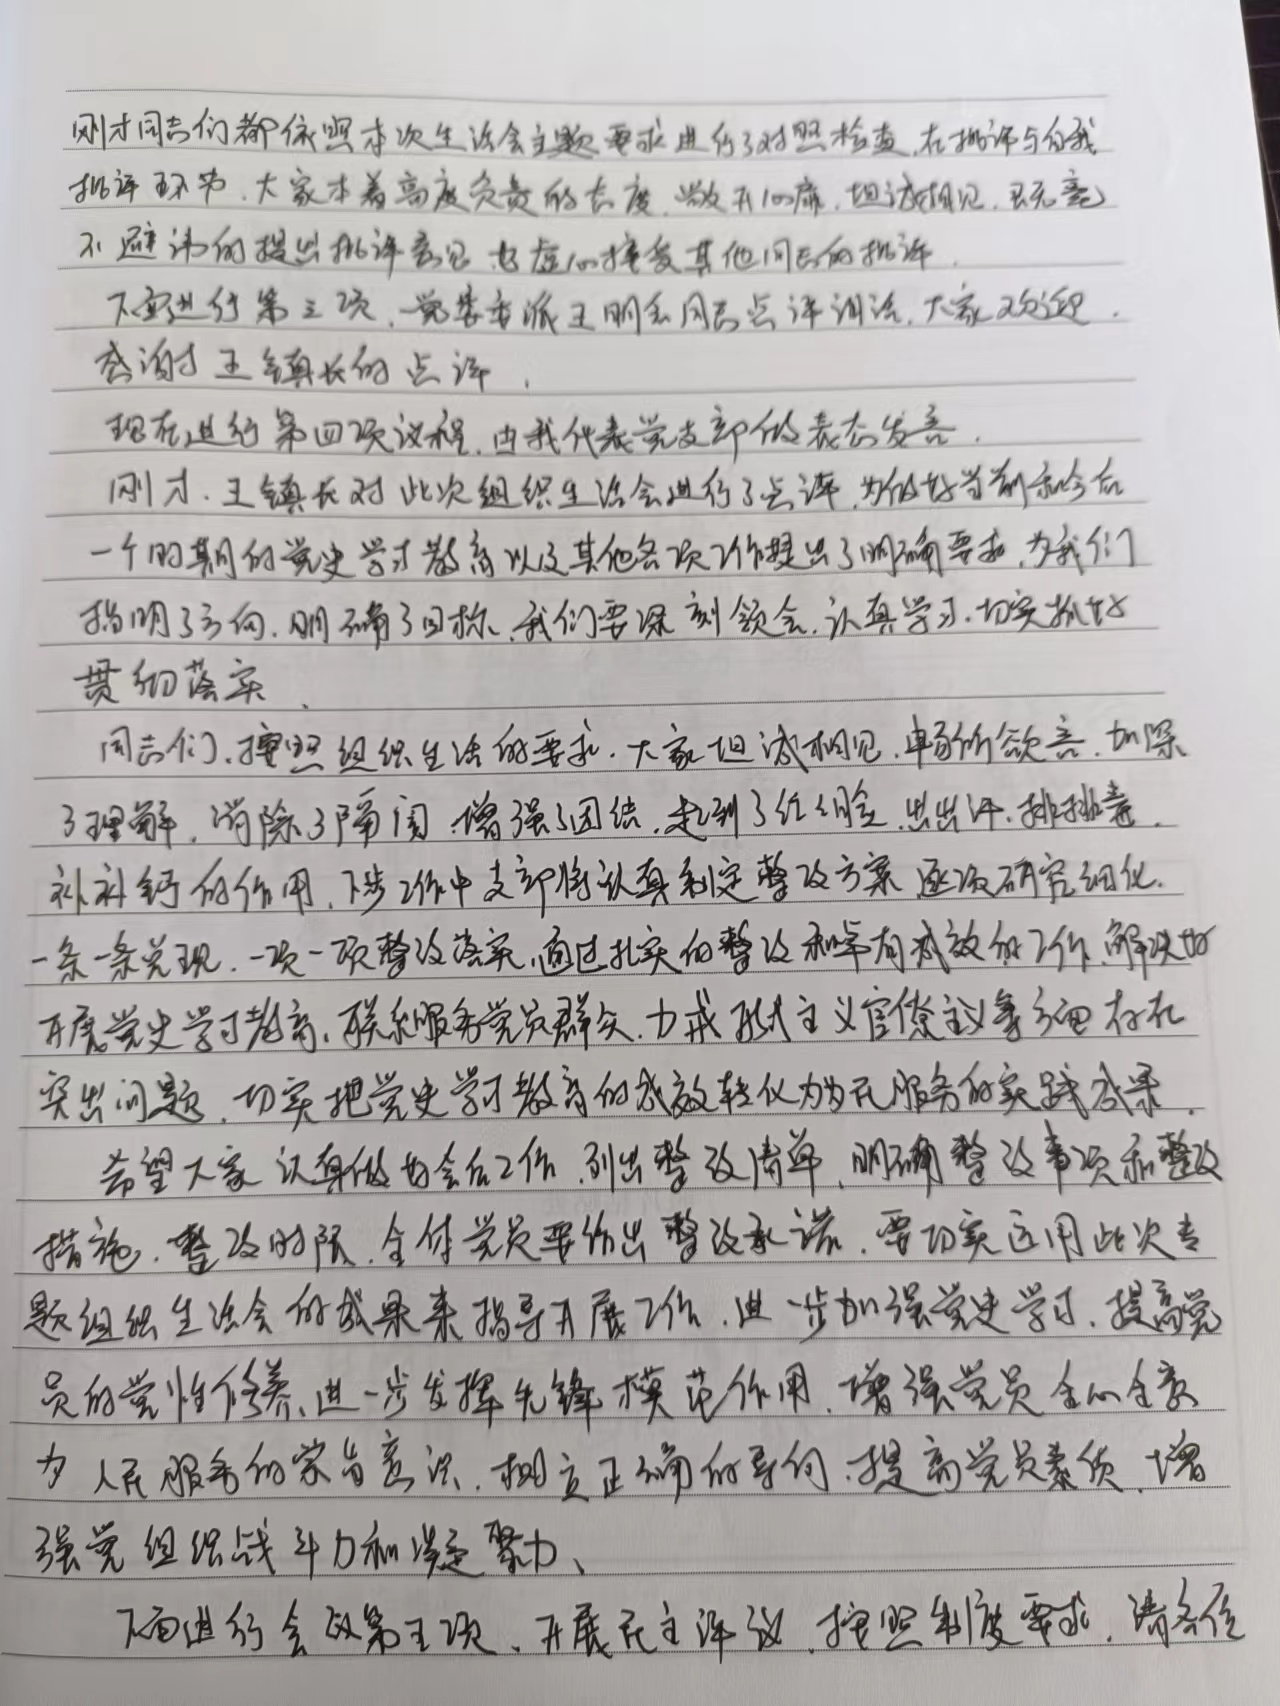 刚才同志们都依照本次生活会主题要求进行了对照检查,在批评与自我
批评环节,大家本着高度负责的态度,敞开心扉,坦诚相见,既毫
不避讳的提出批评意见,也虚心接受其他同志的批评.
下面进行第三项,党委委派王明同志点评讲话,大家欢迎.
感谢王镇长的点评.
现在进行第四项议程,由我代表党支部做表态发言.
刚才,王镇长对此次组织生活会进行了点评,为做好当前和今后
一个时期的党史学习教育以及其他各项工作提出了明确要求,为我们
指明了方向,明确了目标,我们要深刻领会,认真学习,切实抓好
贯彻落实.
同志们,按照组织生活的要求,大家坦诚相见,畅所欲言,加深
了理解,消除了隔阂,增强了团结,起到了红红脸,出出汗,排排毒,
补补钙的作用,下步工作中支部将认真制定整改方案,逐项研究细化,
一条一条兑现,一项一项整改落实,通过扎实的整改和卓有成效的工作,解决好
开展党史学习教育、联系服务党员群众,力戒形式主义官僚主义等方面存在
突出问题,切实把党史学习教育的成效转化为为民服务的实践成果.
希望大家认真做好会后工作,列出整改清单,明确整改事项和整改
措施,整改时限,全体党员要作出整改承诺,要切实运用此次专
题组织生活会的成果来指导开展工作,进一步加强党史学习,提高党
员的党性修养,进一步发挥先锋模范作用,增强党员全心全意
为人民服务的宗旨意识,树立正确的导向,提高党员素质,增
强党组织战斗力和凝聚力、
下面进行会议第五项,开展民主评议,按照制度要求,请各位